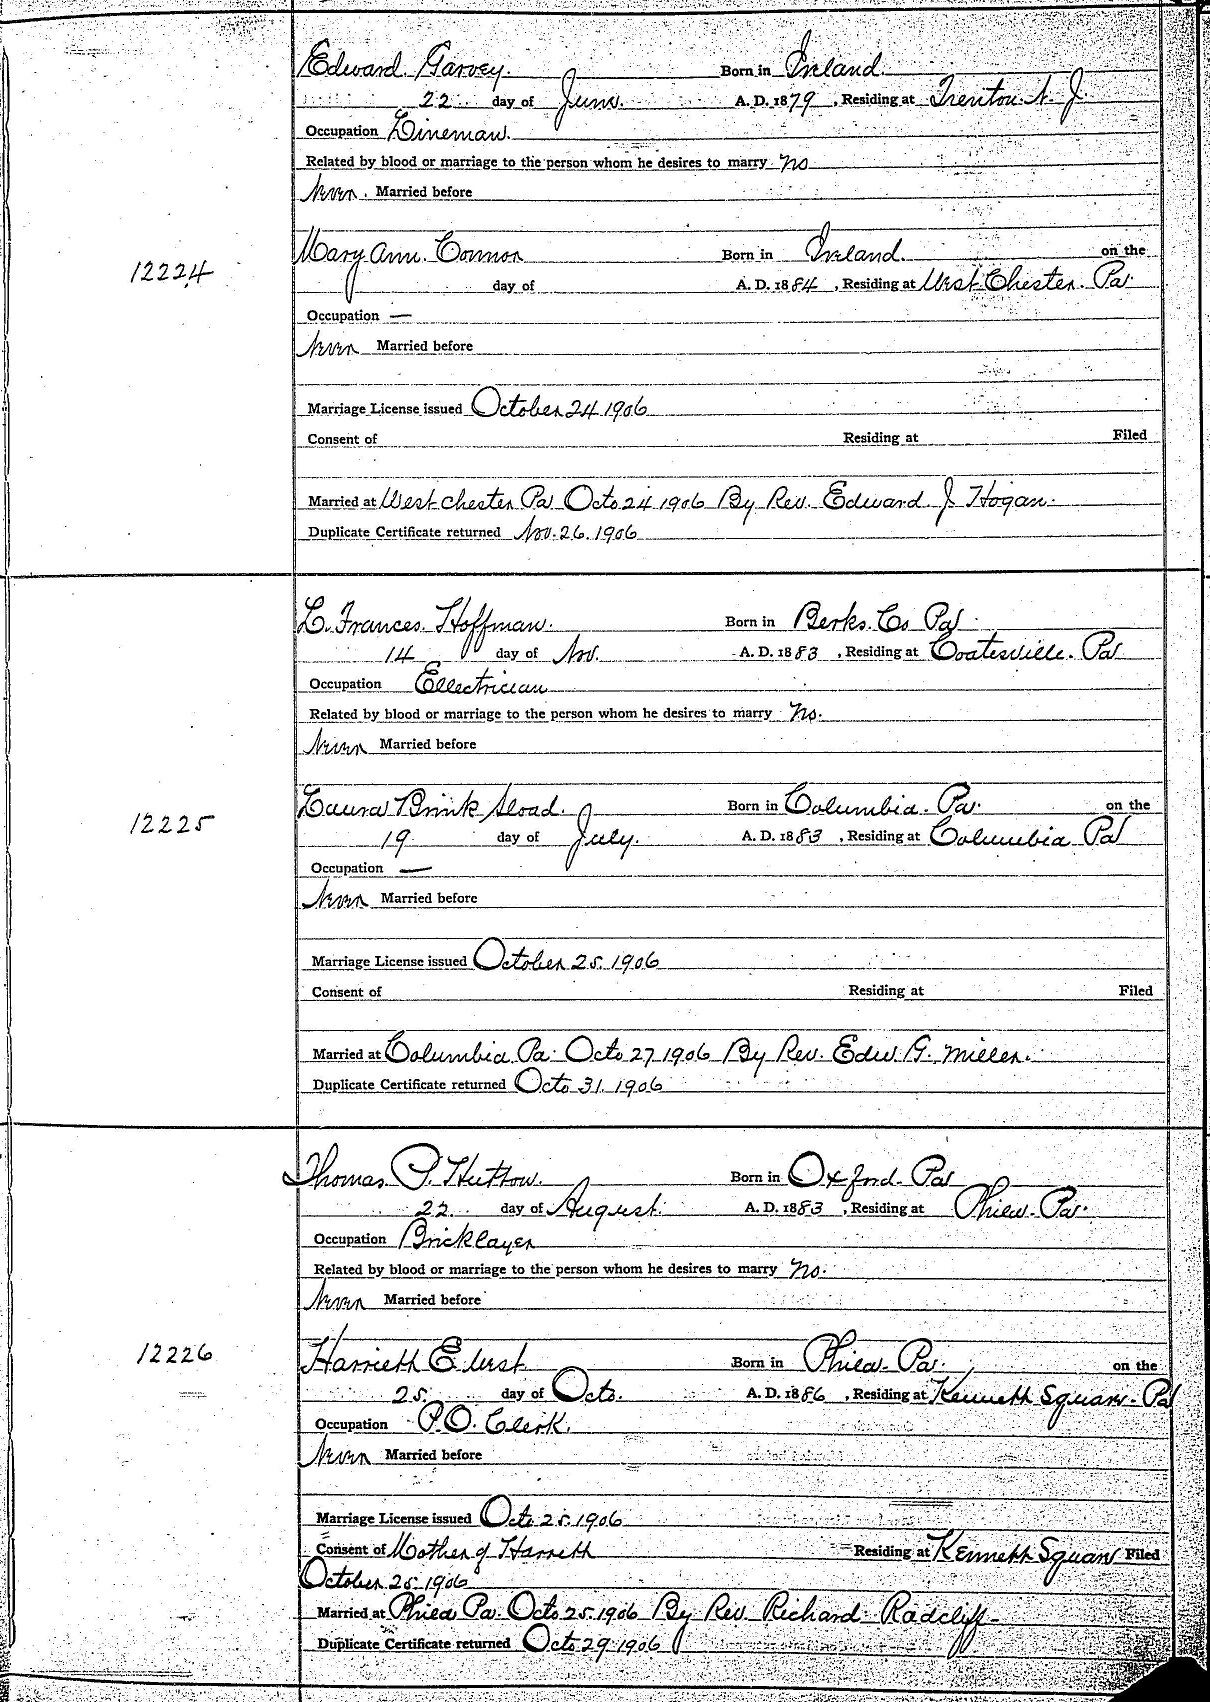 Edward Garvey. Born in Ireland.
22 day of June. A. D. 1879, Residing at Trenton N. J.
Occupation Lineman.
Related by blood or marriage to the person whom he desires to marry No
Never. Married before
Mary Ann. Connor Born in Ireland. on the
12224
day of A. D. 1884, Residing at West Chester. Pa.
Occupation —
Never Married before
Marriage License issued October 24 1906
Consent of Residing at Filed
Married at West Chester Pa Octo 24 1906 By Rev. Edward J. Hogan.
Duplicate Certificate returned Nov. 26. 1906
L. Frances. Hoffman. Born in Berks. Co Pa
14 day of Nov. A. D. 1883, Residing at Coatesville. Pa
Occupation Ellectrician
Related by blood or marriage to the person whom he desires to marry No.
Never Married before
Laura Brink Born in Columbia. Pa. on the
12225
19 day of July. A. D. 1883, Residing at Columbia Pa
Occupation —
Never Married before
Marriage License issued October 25. 1906
Consent of Residing at Filed
Married at Columbia. Pa. Octo 27 1906 By Rev. Edw. G. Miller.
Duplicate Certificate returned Octo 31. 1906
Thomas. P. Hutton. Born in Oxford. Pa
22 day of August. A. D. 1883, Residing at Phila. Pa.
Occupation Bricklayer
Related by blood or marriage to the person whom he desires to marry No.
Never Married before
12226
Harrieth E West Born in Phila. Pa. on the
25. day of Octo. A. D. 1886, Residing at Kenneth Square. Pa
Occupation P. O. Clerk.
Never Married before
Marriage License issued Octo 25. 1906
Consent of Mother of Harrieth Residing at Kenneth Square Filed
October 25. 1906
Married at Phila Pa. Octo 25. 1906 By Rev Richard Radcliff
Duplicate Certificate returned Octo 29 1906